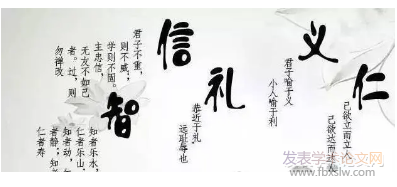 仁
己欲立而立人
己欲达而达人
义
君子喻于义
小人喻于利
礼
恭近于礼,
远耻辱也
信
君子不重,
则不威;
学则不固。
主忠信,
无友不如己
者。过,则
勿惮改
智
知者乐水,
仁者乐山;
知者动,仁
者静;知
仁者寿
发表学术论文网
www.fbxslw.com